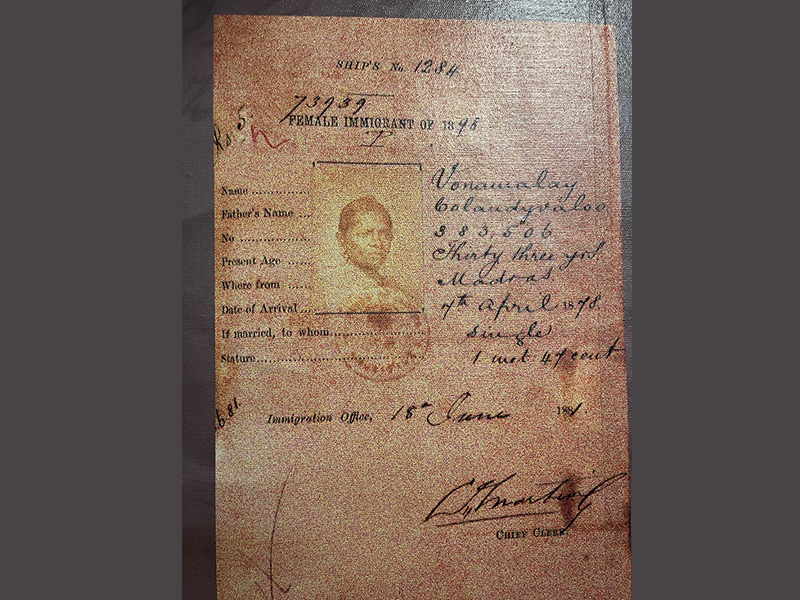 SHIP'S No. 1284
73939
FEMALE IMMIGRANT OF 1898
Rs. 5
Name .............. Vonamalay
Father's Name ... Colandyvaloo
No .................. 383,506
Present Age ...... Thirty three yrs.
Where from ...... Madras
Date of Arrival ... 7th April 1878.
If married, to whom.................... single
Stature.................................. 1 met 47 cent
Immigration Office, 18th June 1881.
CHIEF CLERK.